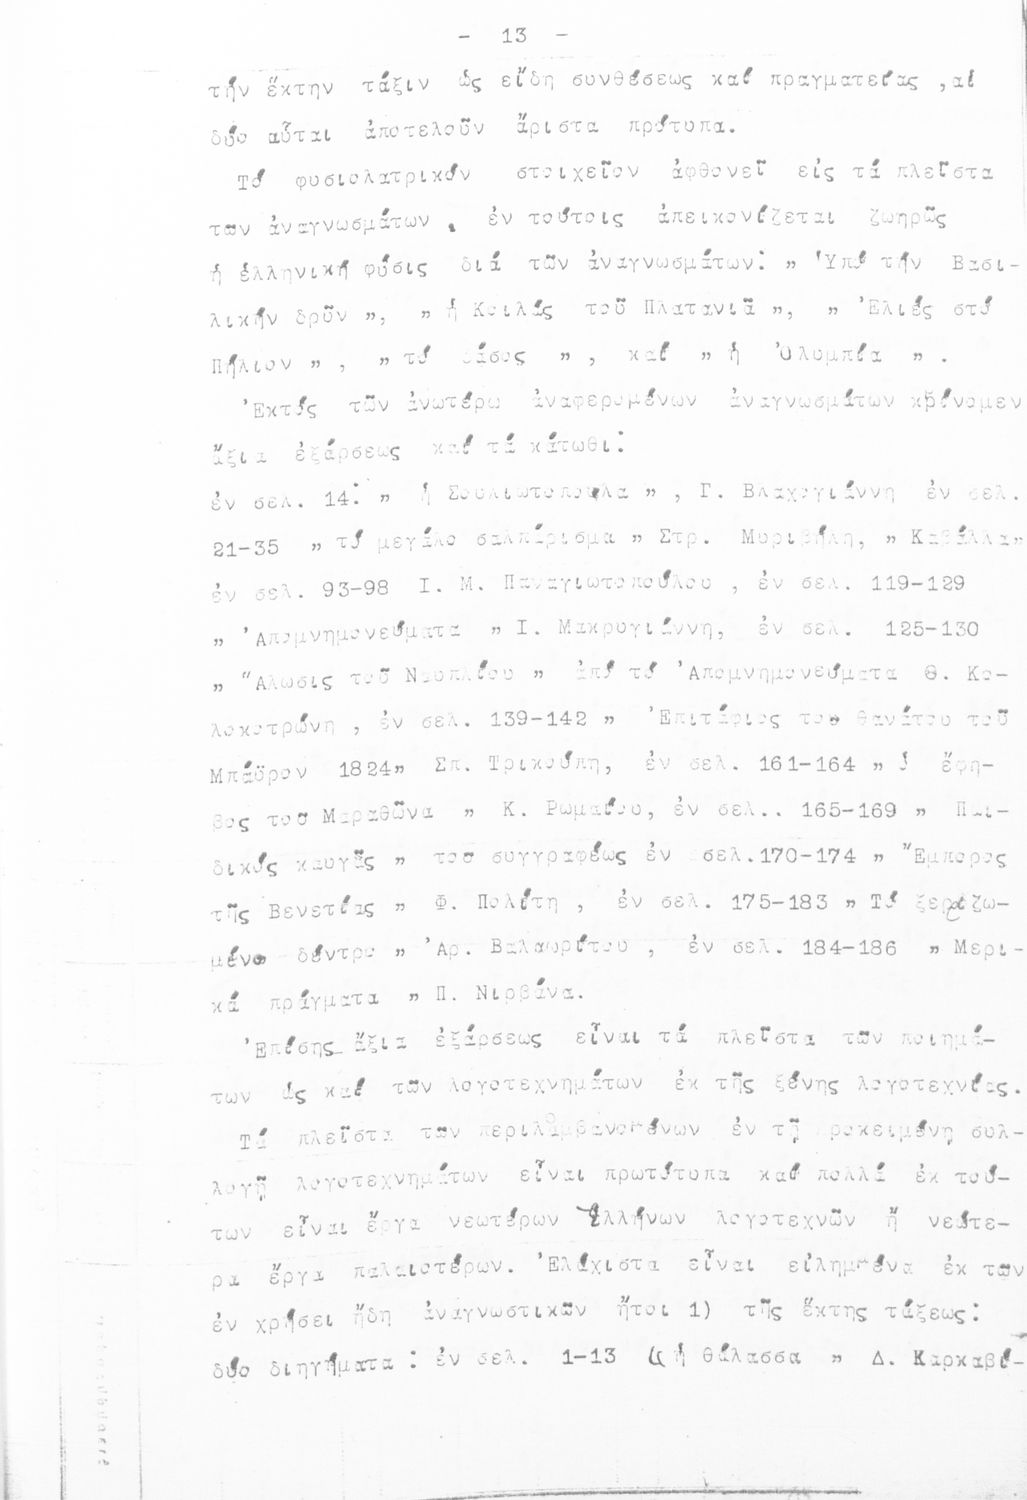 - 13 -
τήν ἕκτην τάξιν ὡς εἴδη συνθέσεως καί πραγματείας ,αἱ
δύο αὗται ἀποτελοῦν ἄριστα πρότυπα.
Τό φυσιολατρικόν στοιχεῖον ἀφθονεῖ εἰς τά πλεῖστα
των ἀναγνωσμάτων , ἐν τούτοις ἀπεικονίζεται ζωηρῶς
ἡ ἑλληνική φύσις διά τῶν ἀναγνωσμάτων: " Ὑπό τήν Βασι-
λικήν δρῦν ", " ἡ Κοιλάς τοῦ Πλατανιᾶ ", " Ἐλιές στό
Πήλιον " , " τό δάσος " , καί " ἡ Ὀλυμπία " .
Ἐκτός τῶν ἀνωτέρω ἀναφερομένων ἀναγνωσμάτων κρίνομεν
ἄξια ἐξάρσεως καί τά κάτωθι:
ἐν σελ. 14: " ἡ Σουλιωτοπούλα " , Γ. Βλαχογιάννη ἐν σελ.
21-35 " τό μεγάλο σαλπίρισμα " Στρ. Μυριβήλη, " Καβάλλα"
ἐν σελ. 93-98 Ι. Μ. Παναγιωτοπούλου , ἐν σελ. 119-129
" Ἀπομνημονεύματα " Ι. Μακρυγιάννη, ἐν σελ. 125-130
" Ἅλωσις τοῦ Ναυπλίου " ἀπό τό Ἀπομνημονεύματα Θ. Κο-
λοκοτρώνη , ἐν σελ. 139-142 " Ἐπιτάφιος του θανάτου τοῦ
Μπάϋρον 1824" Σπ. Τρικούπη, ἐν σελ. 161-164 " ὁ ἔφη-
βος του Μαραθῶνα " Κ. Ρωμαίου, ἐν σελ.. 165-169 " Παι-
δικός καυγᾶς " του συγγραφέως ἐν σελ.170-174 " Ἔμπορος
τῆς Βενετίας " Φ. Πολίτη , ἐν σελ. 175-183 " Τό ξεριζω-
μένο δέντρο " Ἀρ. Βαλαωρίτου , ἐν σελ. 184-186 " Μερι-
κά πράγματα " Π. Νιρβάνα.
Ἐπίσης ἄξια ἐξάρσεως εἶναι τά πλεῖστα τῶν ποιημά-
των ὡς καί τῶν λογοτεχνημάτων ἐκ τῆς ξένης λογοτεχνίας.
Τά πλεῖστα των περιλαμβανομένων ἐν τῇ προκειμένῃ συλ-
λογῇ λογοτεχνημάτων εἶναι πρωτότυπα καί πολλά ἐκ τού-
των εἶναι ἔργα νεωτέρων Ἑλλήνων λογοτεχνῶν ἤ νεώτε-
ρα ἔργα παλαιοτέρων. Ἐλάχιστα εἶναι εἰλημμένα ἐκ των
ἐν χρήσει ἤδη ἀναγνωστικῶν ἤτοι 1) τῆς ἕκτης τάξεως:
δύο διηγήματα : ἐν σελ. 1-13 " ἡ θάλασσα " Δ. Καρκαβί-